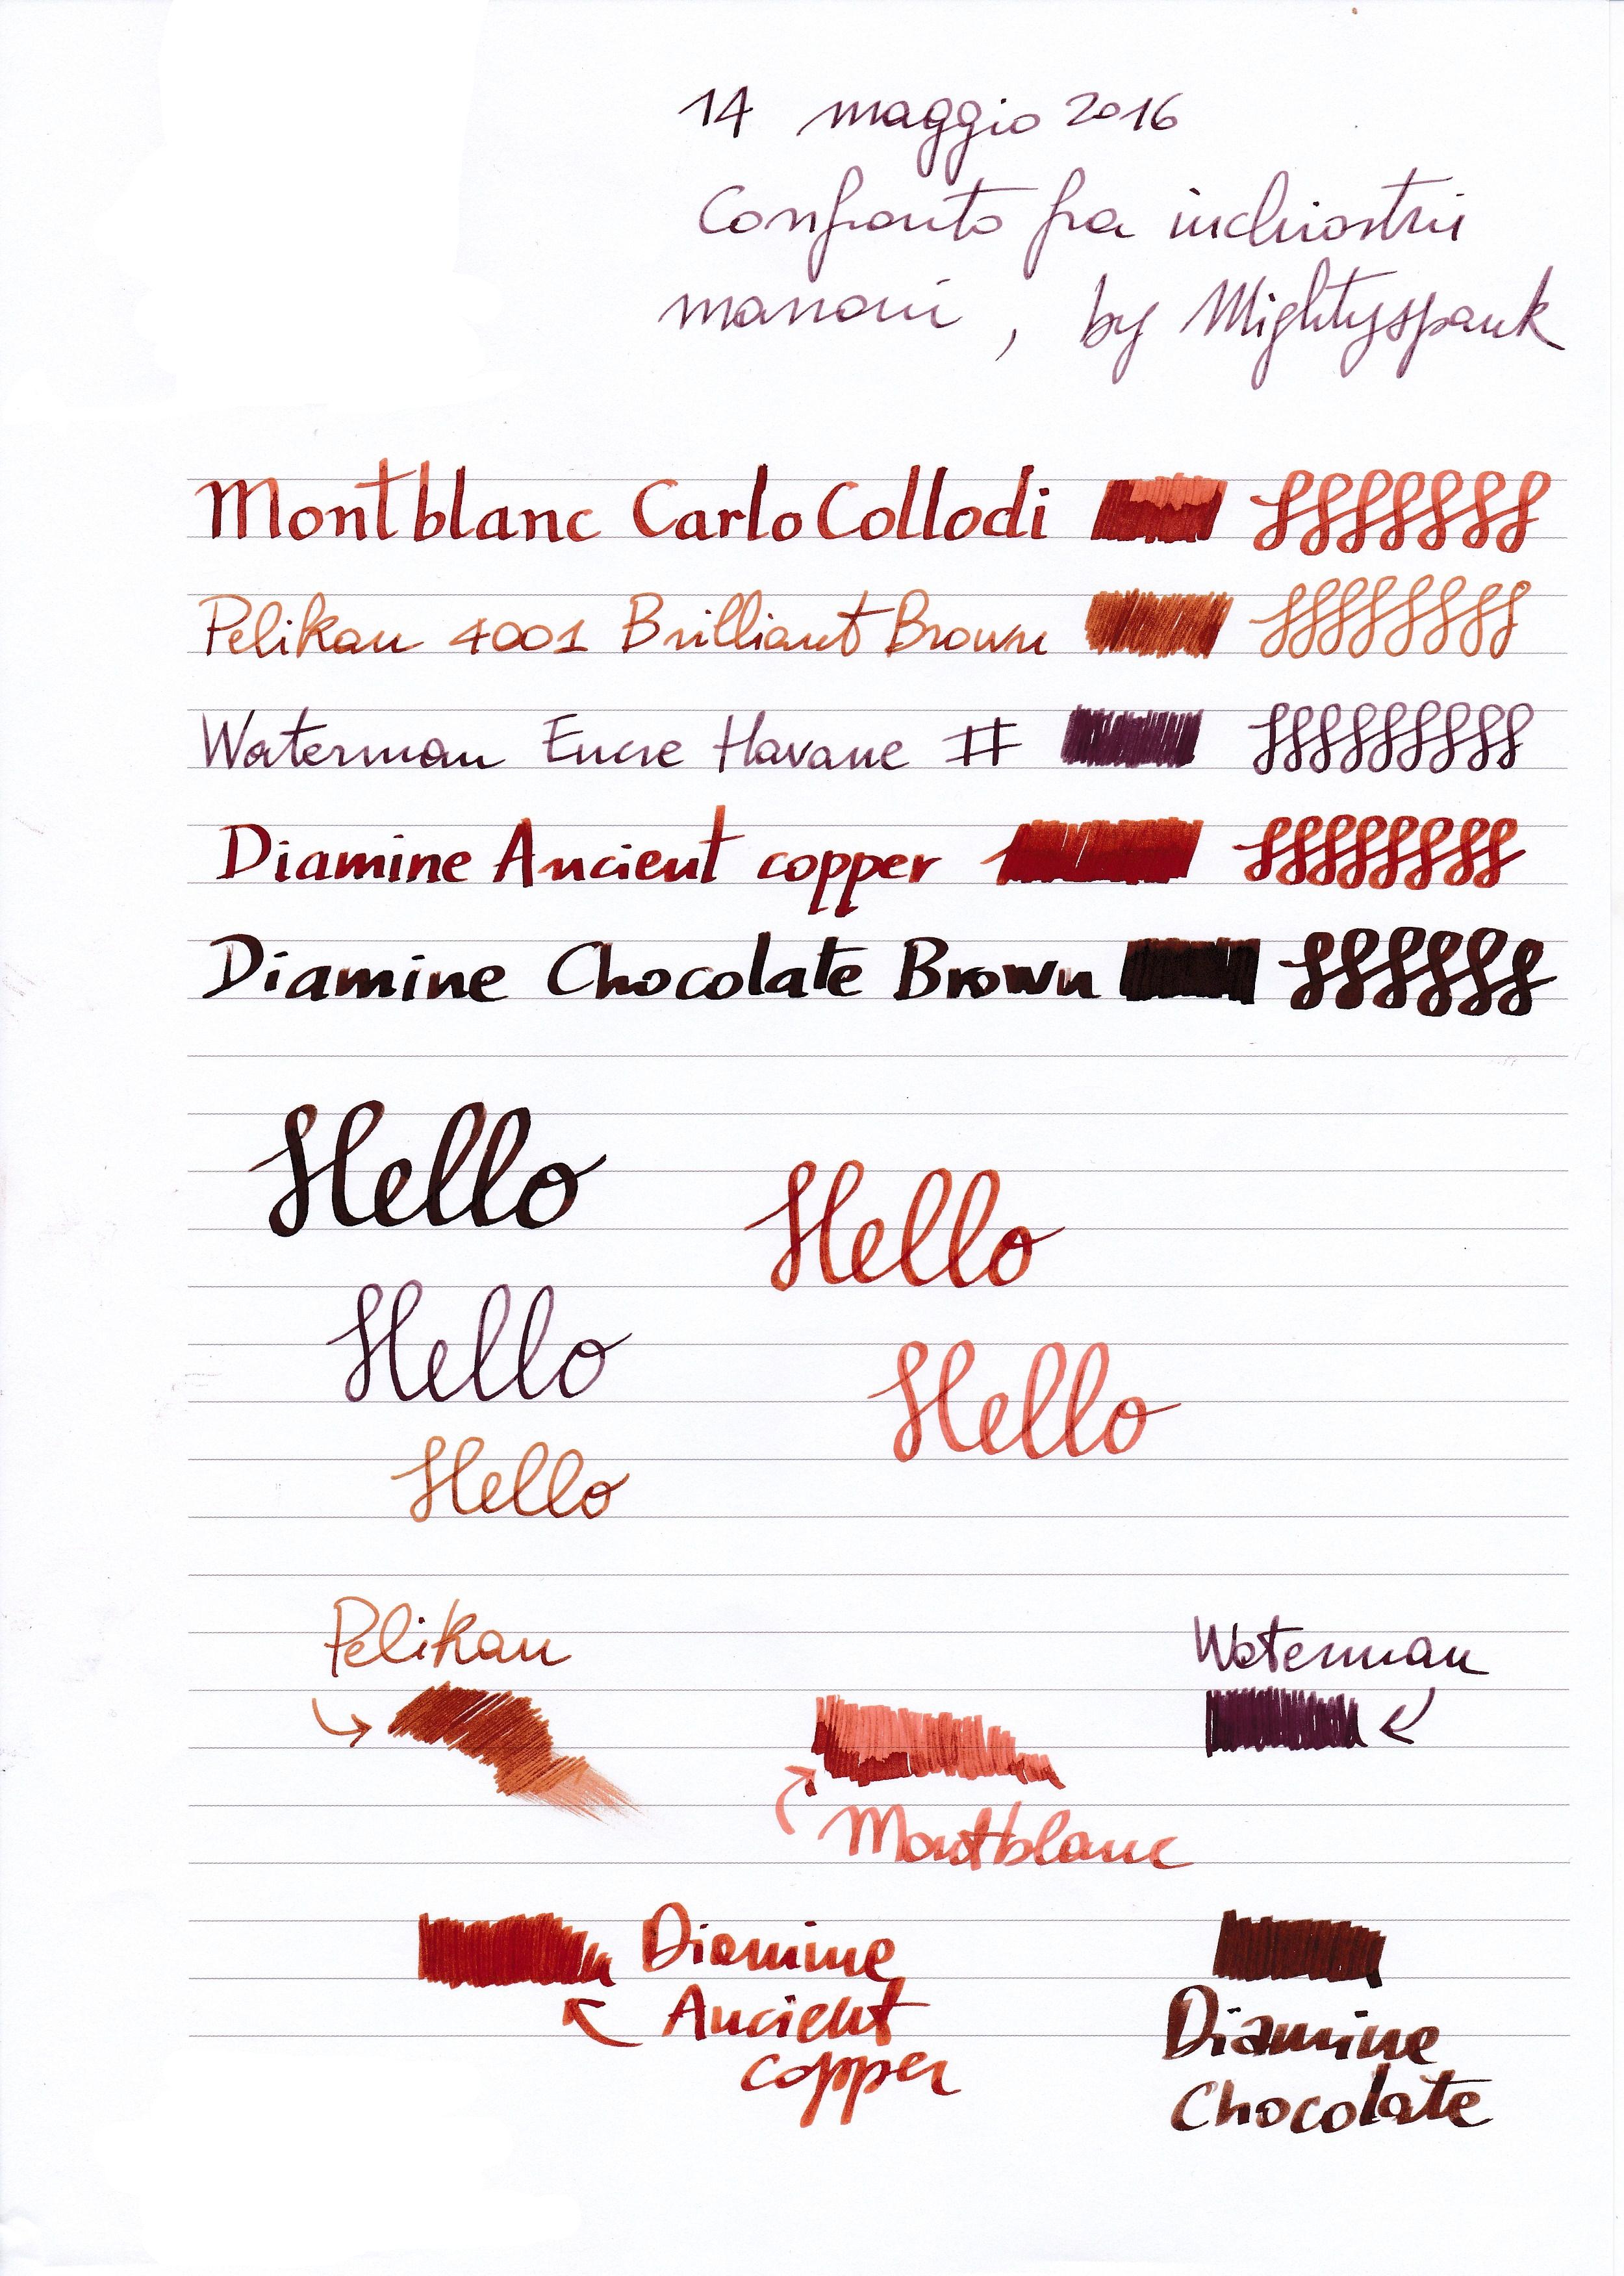 14 maggio 2016
Confronto fra inchiostri
marroni, by Mightyspank
Montblanc Carlo Collodi
Pelikan 4001 Brilliant Brown
Waterman Encre Havane #
Diamine Ancient copper
Diamine Chocolate Brown
Hello
Hello
Hello
Hello
Hello
Pelikan
Waterman
Montblanc
Diamine
Ancient
copper
Diamine
Chocolate